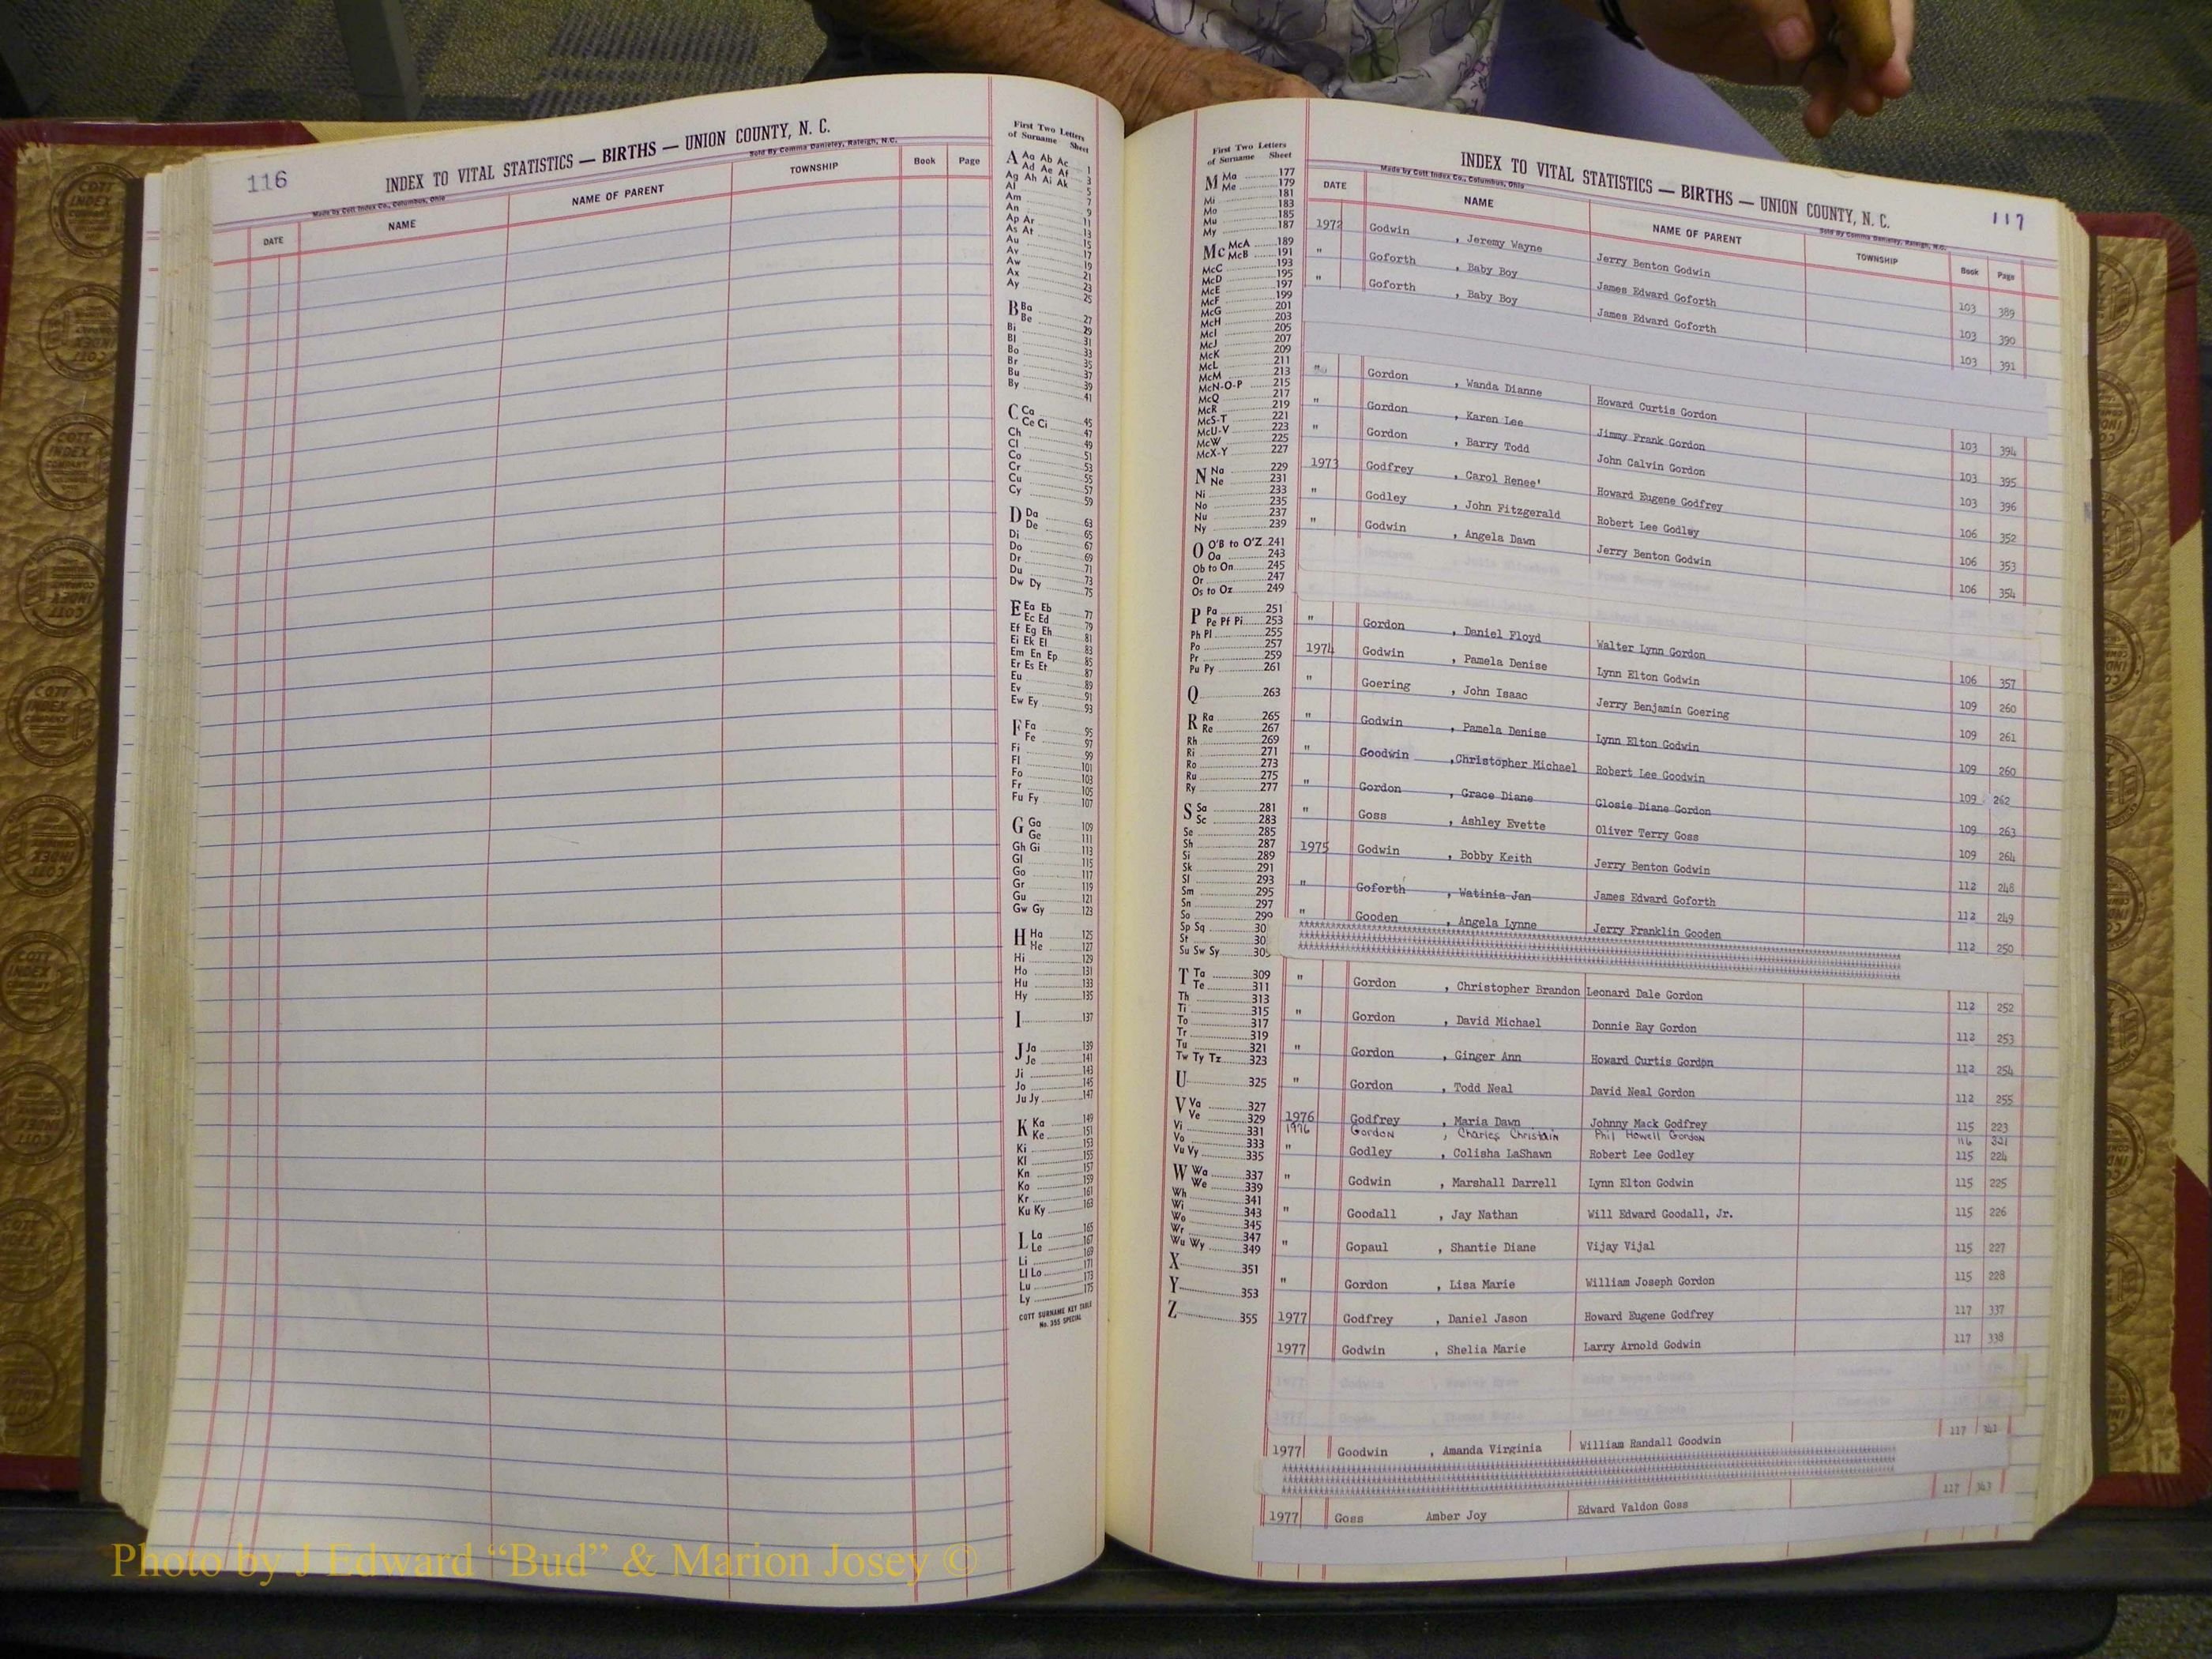 116
INDEX TO VITAL STATISTICS — BIRTHS — UNION COUNTY, N. C.
Made by Cott Index Co., Columbus, Ohio
Sold By Comma Danieley, Raleigh, N.C.
DATE NAME NAME OF PARENT TOWNSHIP Book Page
First Two Letters
of Surname Sheet
A Aa Ab Ac 1
Ad Ae Af 3
Ag Ah Ai Ak 5
Al 7
Am 9
An 11
Ap Ar 13
As At 15
Au 17
Av 19
Aw 21
Ax 23
Ay 25
B Ba 27
Be 29
Bi 31
Bl 33
Bo 35
Br 37
Bu 39
By 41
C Ca 45
Ce Ci 47
Ch 49
Cl 51
Co 53
Cr 55
Cu 57
Cy 59
D Da 63
De 65
Di 67
Do 69
Dr 71
Du 73
Dw Dy 75
E Ea Eb 77
Ec Ed 79
Ef Eg Eh 81
Ei Ek El 83
Em En Ep 85
Er Es Et 87
Eu 89
Ev 91
Ew Ey 93
F Fa 95
Fe 97
Fi 99
Fl 101
Fo 103
Fr 105
Fu Fy 107
G Ga 109
Ge 111
Gh Gi 113
Gl 115
Go 117
Gr 119
Gu 121
Gw Gy 123
H Ha 125
He 127
Hi 129
Ho 131
Hu 133
Hy 135
I 137
J Ja 139
Je 141
Ji 143
Jo 145
Ju Jy 147
K Ka 149
Ke 151
Ki 153
Kl 155
Kn 157
Ko 159
Kr 161
Ku Ky 163
L La 165
Le 167
Li 169
Ll Lo 171
Lu 173
Ly 175
COTT SURNAME KEY TABLE
No. 355 SPECIAL
First Two Letters
of Surname Sheet
M Ma 177
Me 179
Mi 181
Mo 183
Mu 185
My 187
Mc McA 189
McB 191
McC 193
McD 195
McE 197
McF 199
McG 201
McH 203
McI 205
McJ 207
McK 209
McL 211
McM 213
McN-O-P 215
McQ 217
McR 219
McS-T 221
McU-V 223
McW 225
McX-Y 227
N Na 229
Ne 231
Ni 233
No 235
Nu 237
Ny 239
O O'B to O'Z 241
Oa 243
Ob to On 245
Or 247
Os to Oz 249
P Pa 251
Pe Pf Pi 253
Ph Pl 255
Po 257
Pr 259
Pu Py 261
Q 263
R Ra 265
Re 267
Rh 269
Ri 271
Ro 273
Ru 275
Ry 277
S Sa 281
Sc 283
Se 285
Sh 287
Si 289
Sk 291
Sl 293
Sm 295
Sn 297
So 299
Sp Sq 30
St 30
Su Sw Sy 305
T Ta 309
Te 311
Th 313
Ti 315
To 317
Tr 319
Tu 321
Tw Ty Tz 323
U 325
V Va 327
Ve 329
Vi 331
Vo 333
Vu Vy 335
W Wa 337
We 339
Wh 341
Wi 343
Wo 345
Wr 347
Wu Wy 349
X 351
Y 353
Z 355
INDEX TO VITAL STATISTICS — BIRTHS — UNION COUNTY, N. C.
117
Made by Cott Index Co., Columbus, Ohio
Sold By Comma Danieley, Raleigh, N.C.
DATE NAME NAME OF PARENT TOWNSHIP Book Page
1972 Godwin , Jeremy Wayne Jerry Benton Godwin 103 389
" Goforth , Baby Boy James Edward Goforth 103 390
" Goforth , Baby Boy James Edward Goforth 103 391
" Gordon , Wanda Dianne Howard Curtis Gordon 103 394
" Gordon , Karen Lee Jimmy Frank Gordon 103 395
" Gordon , Barry Todd John Calvin Gordon 103 396
1973 Godfrey , Carol Renee' Howard Eugene Godfrey 106 352
" Godley , John Fitzgerald Robert Lee Godley 106 353
" Godwin , Angela Dawn Jerry Benton Godwin 106 354
" Gordon , Daniel Floyd Walter Lynn Gordon 106 357
1974 Godwin , Pamela Denise Lynn Elton Godwin 109 260
" Goering , John Isaac Jerry Benjamin Goering 109 261
" Godwin , Pamela Denise Lynn Elton Godwin 109 260
" Goodwin ,Christopher Michael Robert Lee Goodwin 109 262
" Gordon , Grace Diane Glosie Diane Gordon 109 263
" Goss , Ashley Evette Oliver Terry Goss 109 264
1975 Godwin , Bobby Keith Jerry Benton Godwin 112 248
" Goforth , Watinia Jan James Edward Goforth 112 249
" Gooden , Angela Lynne Jerry Franklin Gooden 112 250
" Gordon , Christopher Brandon Leonard Dale Gordon 112 252
" Gordon , David Michael Donnie Ray Gordon 112 253
" Gordon , Ginger Ann Howard Curtis Gordon 112 254
" Gordon , Todd Neal David Neal Gordon 112 255
1976 Godfrey , Maria Dawn Johnny Mack Godfrey 115 223
1976 Gordon , Charles Christain Phil Howell Gordon 116 331
" Godley , Colisha LaShawn Robert Lee Godley 115 224
" Godwin , Marshall Darrell Lynn Elton Godwin 115 225
" Goodall , Jay Nathan Will Edward Goodall, Jr. 115 226
" Gopaul , Shantie Diane Vijay Vijal 115 227
" Gordon , Lisa Marie William Joseph Gordon 115 228
1977 Godfrey , Daniel Jason Howard Eugene Godfrey 117 337
1977 Godwin , Shelia Marie Larry Arnold Godwin 117 338
1977 Goodwin , Amanda Virginia William Randall Goodwin 117 341
1977 Goss Amber Joy Edward Valdon Goss 117 343
Photo by J Edward “Bud” & Marion Josey ©